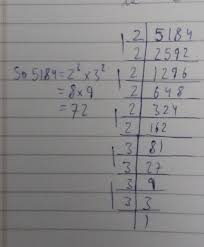 So 5184 = 2³ x 3²
= 8 x 9
= 72
2 | 5184
2 | 2592
2 | 1296
2 | 648
2 | 324
2 | 162
3 | 81
3 | 27
3 | 9
3 | 3
1